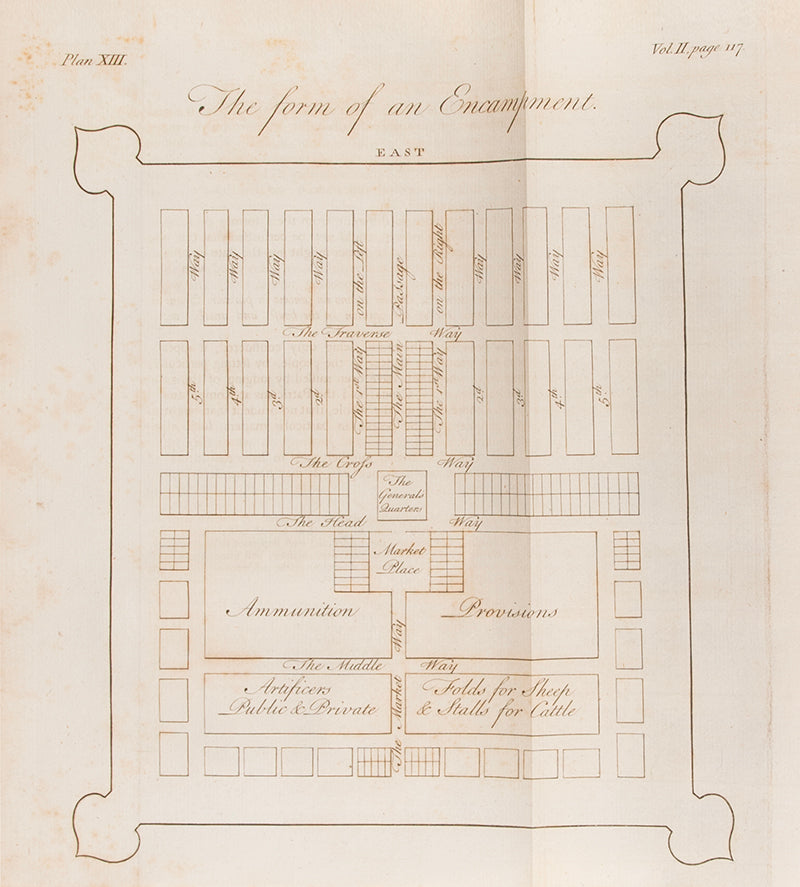 Plan XIII.
Vol. II, page 117.
The form of an Encampment.
EAST
Way
Way
Way
Way
on the Left
Passage
on the Right
Way
Way
Way
Way
The Traverse Way
5th
4th
3d
2d
The 1st Way
The Main
The 1st Way
2d
3d
4th
5th
The Cross Way
The
Generals
Quarters
The Head Way
Market
Place
Ammunition
Provisions
The Middle Way
The Market Way
Artificers
Public & Private
Folds for Sheep
& Stalls for Cattle